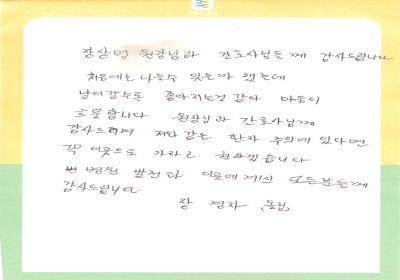 장상범 원장님과 간호사님들께 감사드립니다
처음에는 나을수 있는가 했는데
날이갈수록 좋아지는것 같아 마음이
흐뭇합니다 원장님과 간호사님께
감사드리며 저와같은 환자 주의에 있다면
꼭 이곳으로 가라고 권하겠습니다
병원 발전과 이곳에 계신 모든분들께
감사드립니다
장 경자